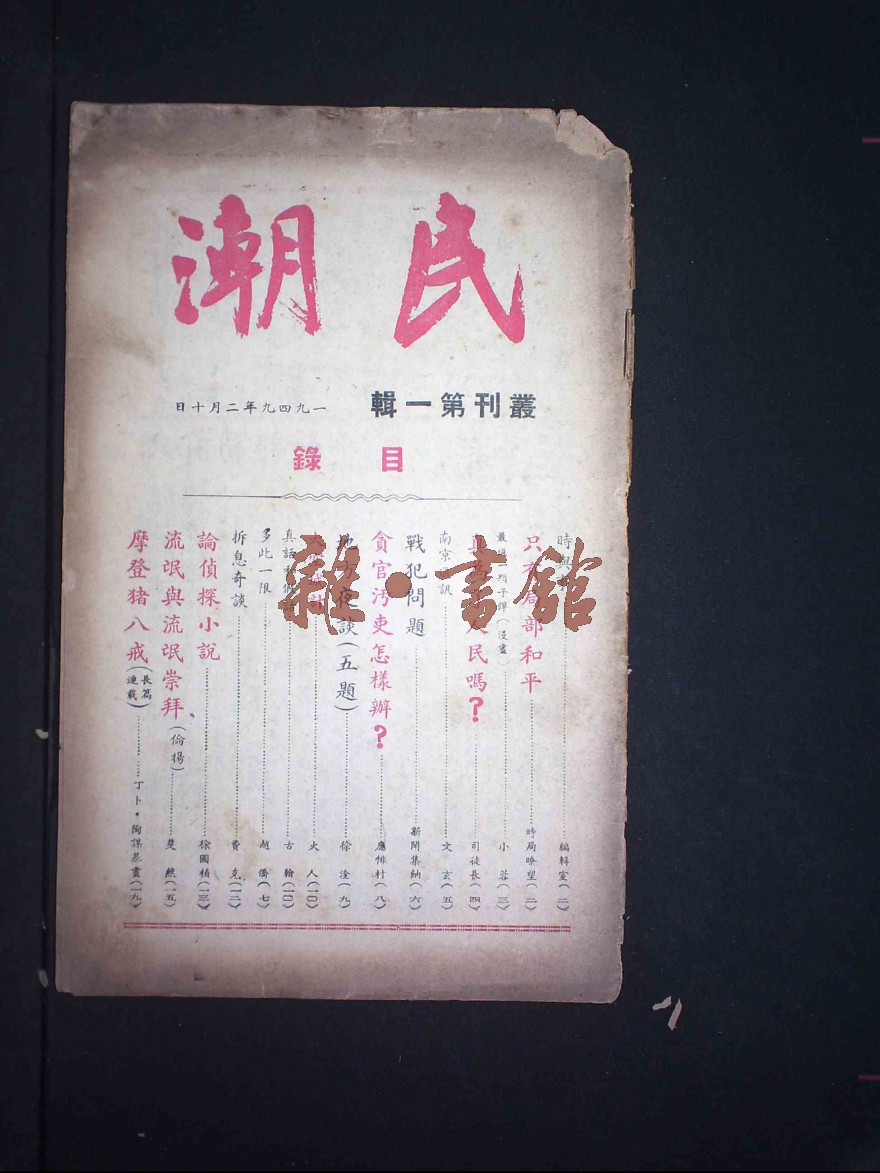 民潮
叢刊第一輯
一九四九年二月十日
目錄
時與 編輯室(二)
只有局部和平 時局瞭望(二)
最後一顆子彈(漫畫) 小蓉(三)
人民嗎？ 司徒長(四)
南京 訊 文玄(五)
戰犯問題 新聞集納(六)
貪官污吏怎樣辦？ 應悱村(八)
夜談(五題) 徐淦(九)
火人(一〇)
真話 古翰(一〇)
多此一限 趙僑(七)
拆息奇談 費克(一二)
論偵探小說 徐國楨(一三)
流氓與流氓崇拜(倫揚) 斐然(一五)
摩登猪八戒(長篇連載) 丁卜·陶謀基畫(一九)
雜·書館